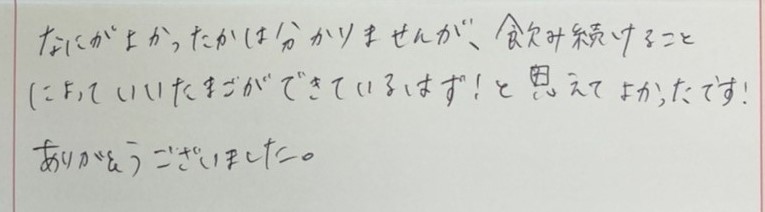 なにがよかったかは分かりませんが、飲み続けること
によっていいたまごができているはず!と思えてよかったです!
ありがとうございました。